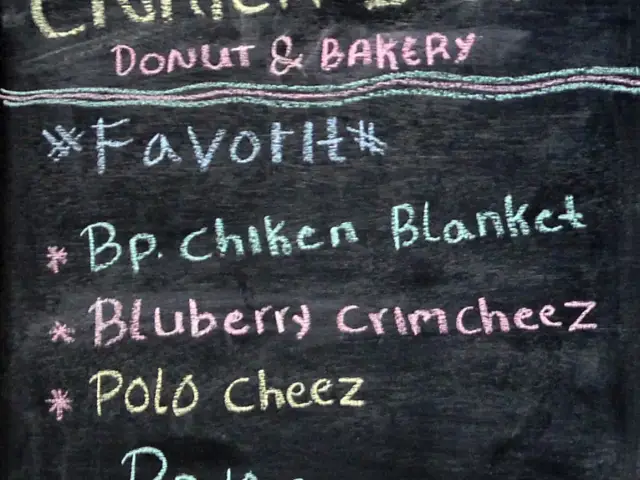 DONUT & BAKERY
*Favorit*
* Bp. Chiken Blanket
* Bluberry Crimcheez
* Polo Cheez